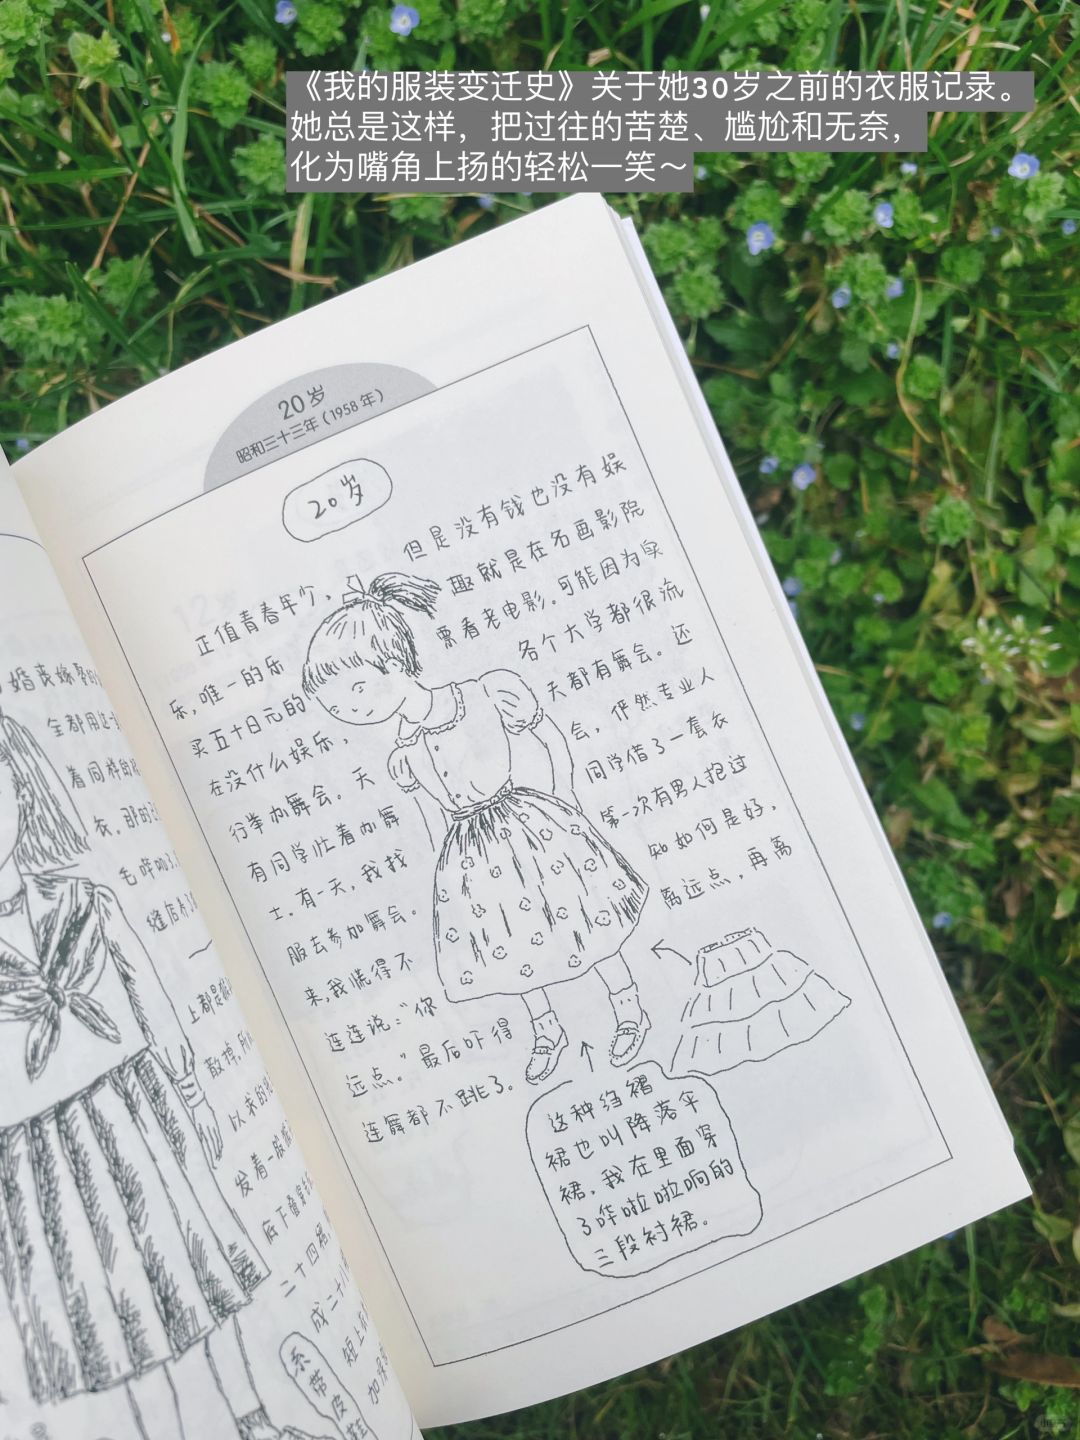 《我的服装变迁史》关于她30岁之前的衣服记录。
她总是这样，把过往的苦楚、尴尬和无奈，
化为嘴角上扬的轻松一笑～
婚丧嫁娶的
全都用这
着同样的
衣，那时
毛哔叽
缝店
上都是
散掉，所
以我的
发着一股
底下叠
二十四褶，
成二十八
短上
加
系带皮鞋
20岁
昭和三十三年（1958年）
20岁
正值青春年少，但是没有钱也没有娱
乐，唯一的乐趣就是在名画影院
买五十日元的票看老电影。可能因为实
在没什么娱乐，各个大学都很流
行举办舞会。天天都有舞会。还
有同学忙着办舞会，俨然专业人
士。有一天，我找同学借了一套衣
服去参加舞会。第一次有男人抱过
来，我慌得不知如何是好，
连连说：“你离远点，再离
远点。”最后吓得
连舞都不跳了。
这种绉褶
裙也叫降落伞
裙，我在里面穿
了哗啦啦响的
三段衬裙。